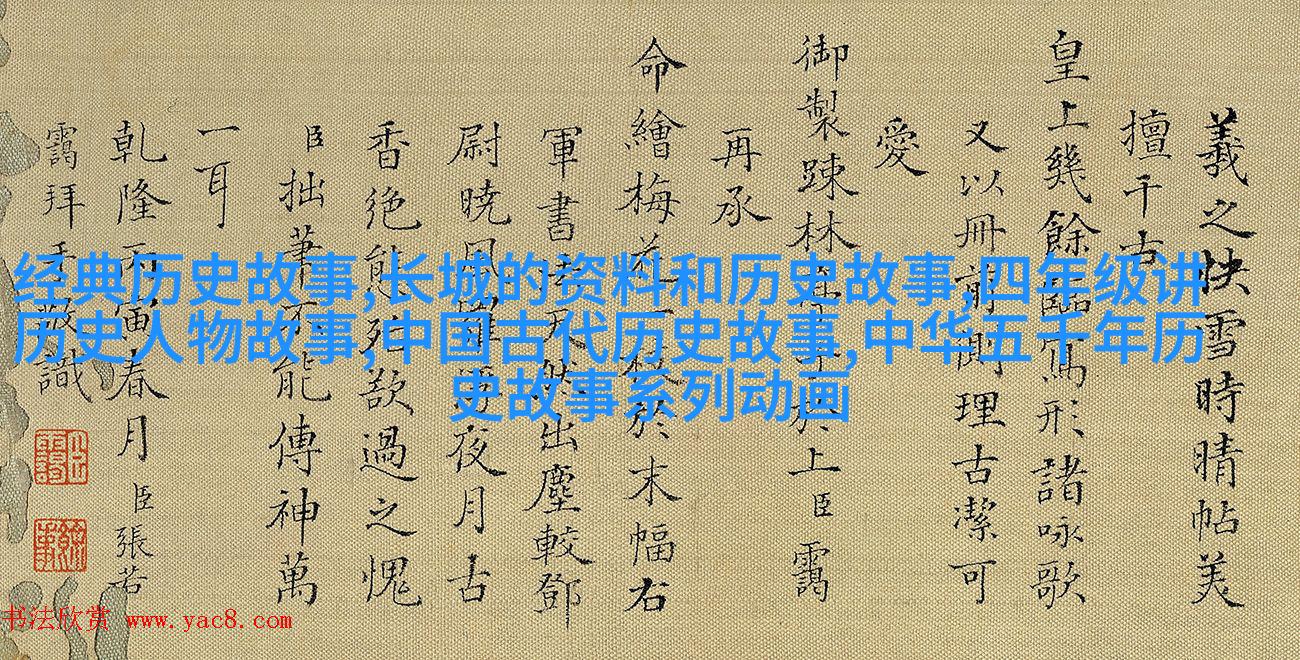 羲之快雪時晴帖美
擅千古
皇上幾餘臨寫形諸咏歌
又以冊前側理古潔可
愛
御製疎林於上臣靄
再承
命繪梅花一枝於末幅右
軍書法天然出塵較鄧
尉曉風羅浮夜月古
香絶態殆欲過之愧
臣拙筆不能傳神萬
一耳
乾隆丙寅春月臣張若
靄拜手敬識
经典历史故事,长城的资料和历史故事,四年级讲
历史人物故事,中国古代历史故事,中华五千年历
史故事系列动画
书法欣赏 www.yac8.com